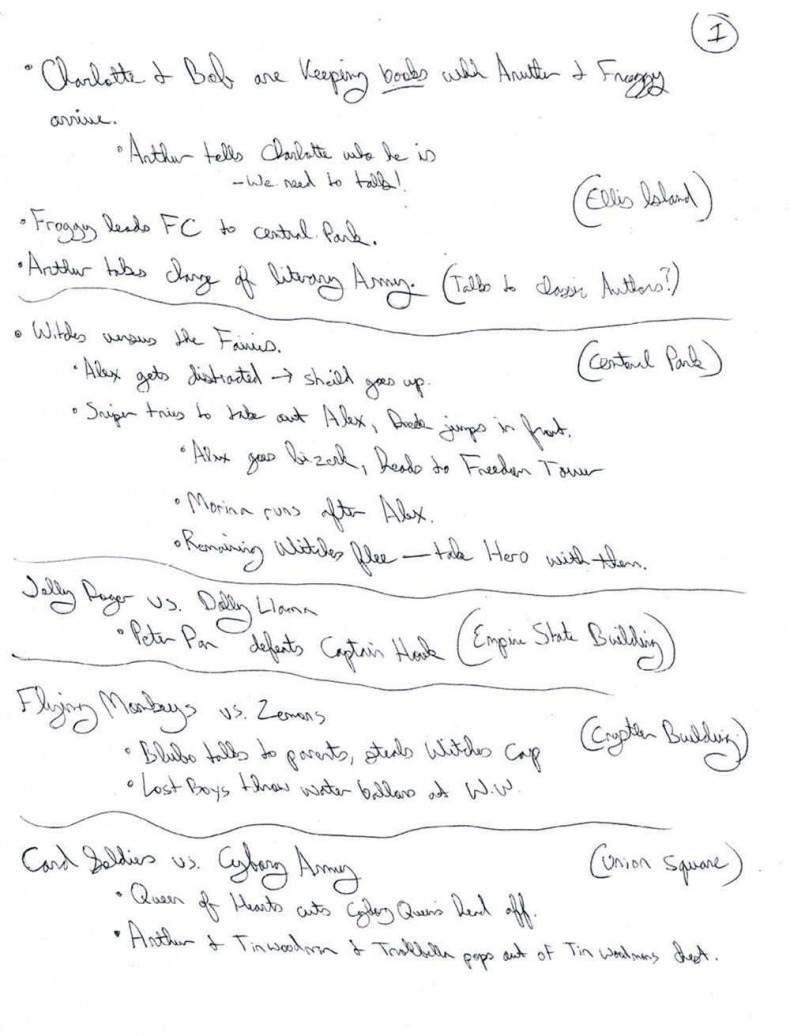 I
• Charlotte & Bob are Keeping books until Arthur & Froggy
arrive.
• Arthur tells Charlotte who he is
- We need to talk!
(Ellis Island)
• Froggy leads FC to central Park.
• Arthur takes charge of literary Army. (Talks to classic Authors?)
• Witches versus the Fairies.
(Central Park)
• Alex gets distracted → sheild goes up.
• Sniper tries to take out Alex, jumps in front.
• Alex goes bizerk, Heads to Freedom Tower
• Morina runs after Alex.
• Remaining Witches flee — take Hero with them.
Jolly Roger vs. Dolly Llama
• Peter Pan defeats Captain Hook (Empire State Building)
Flying Monkeys vs. Zomons
(Crystler Building)
• Blubo talks to parents, steals Witches Cap
• Lost Boys throw water ballons at W.W.
Card Soldies vs. Cyborg Army
(Union Square)
• Queen of Hearts cuts Cyborg Queens Head off.
• Arthur & Tinwoodman & Trollbella pops out of Tin woodmans chest.